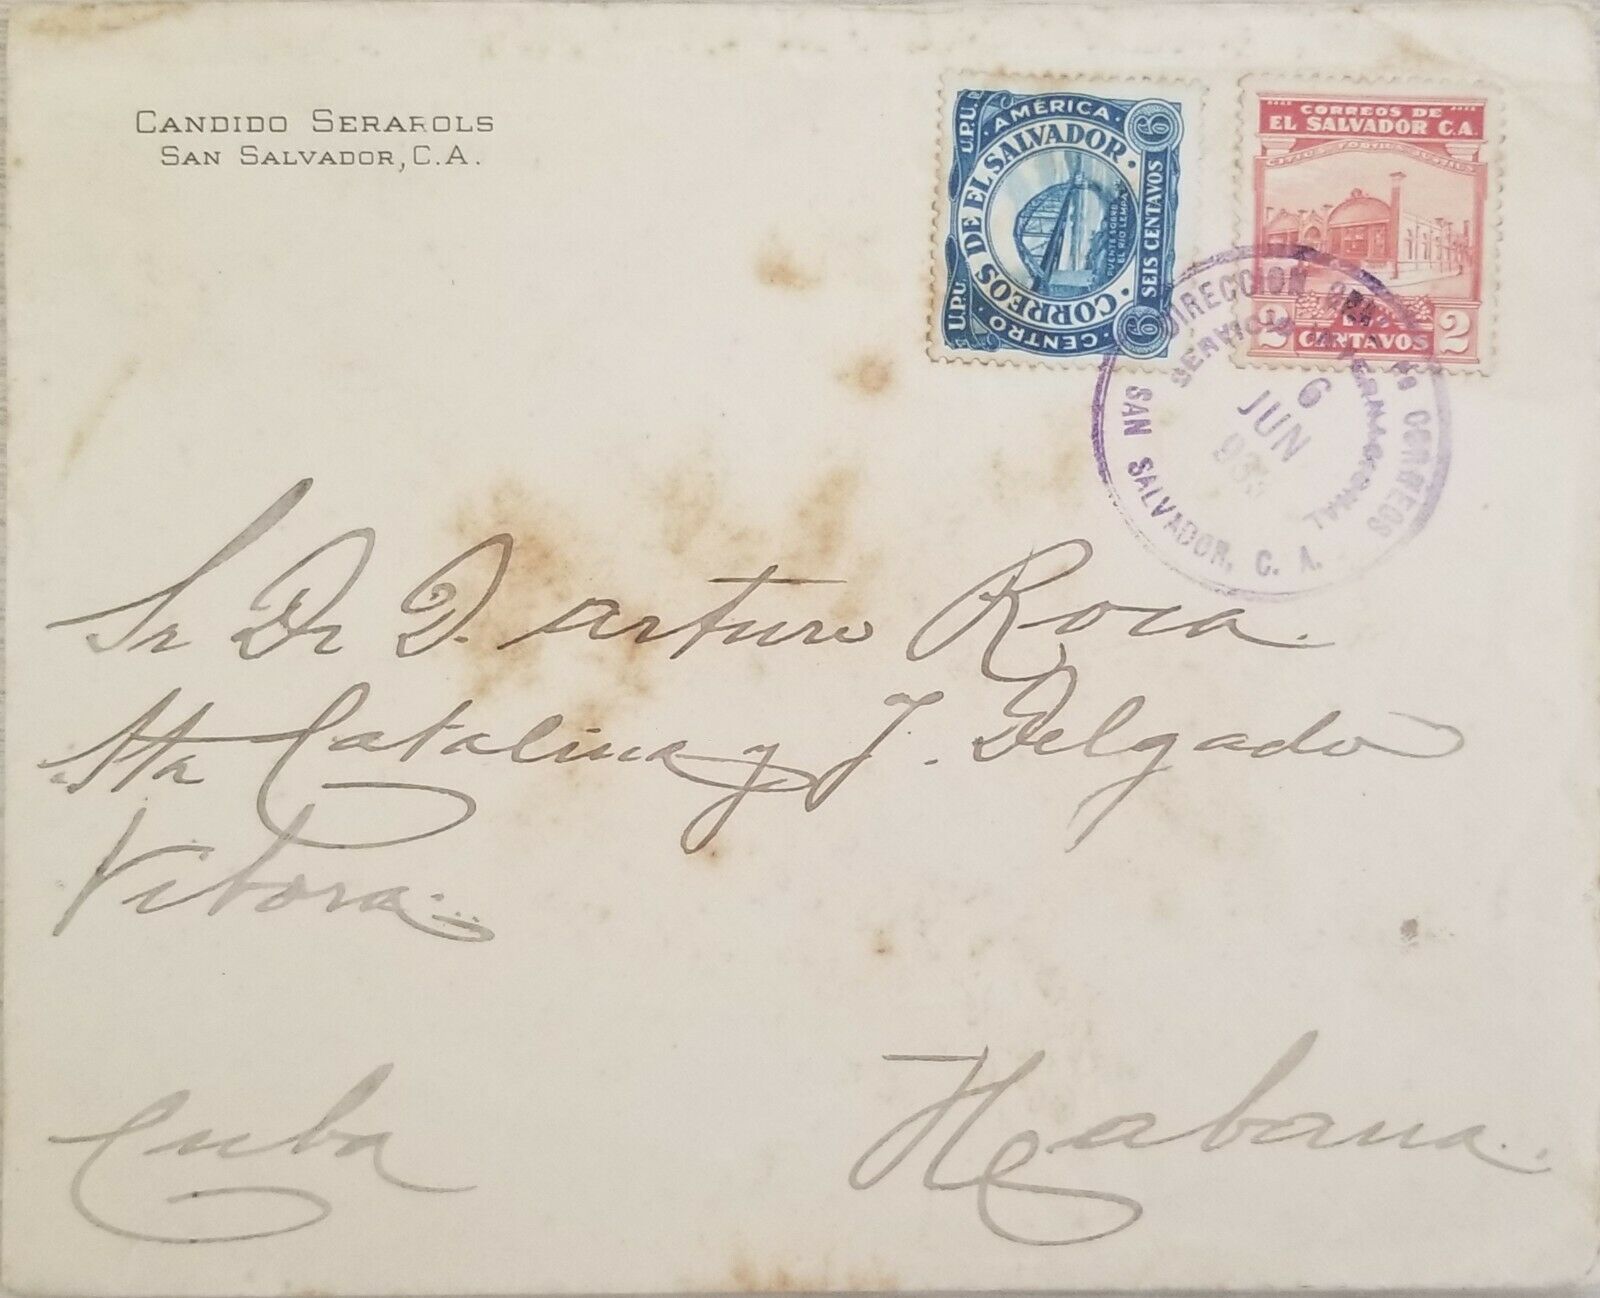 CANDIDO SERAROLS
SAN SALVADOR, C.A.
U.P.U. CENTRO AMÉRICA U.P.U.
CORREOS DE EL SALVADOR
PUENTE SOBRE
EL RIO LEMPA
6 SEIS CENTAVOS 6
CORREOS DE
EL SALVADOR C.A.
2 DOS 2
CENTAVOS
DIRECCION GRAL. DE CORREOS
SERVICIO INTERNACIONAL
6
JUN
SAN SALVADOR, C. A.
Sr Dr D. Arturo Roca.
Sta Catalina y J. Delgado
Vibora.
Cuba
Habana.